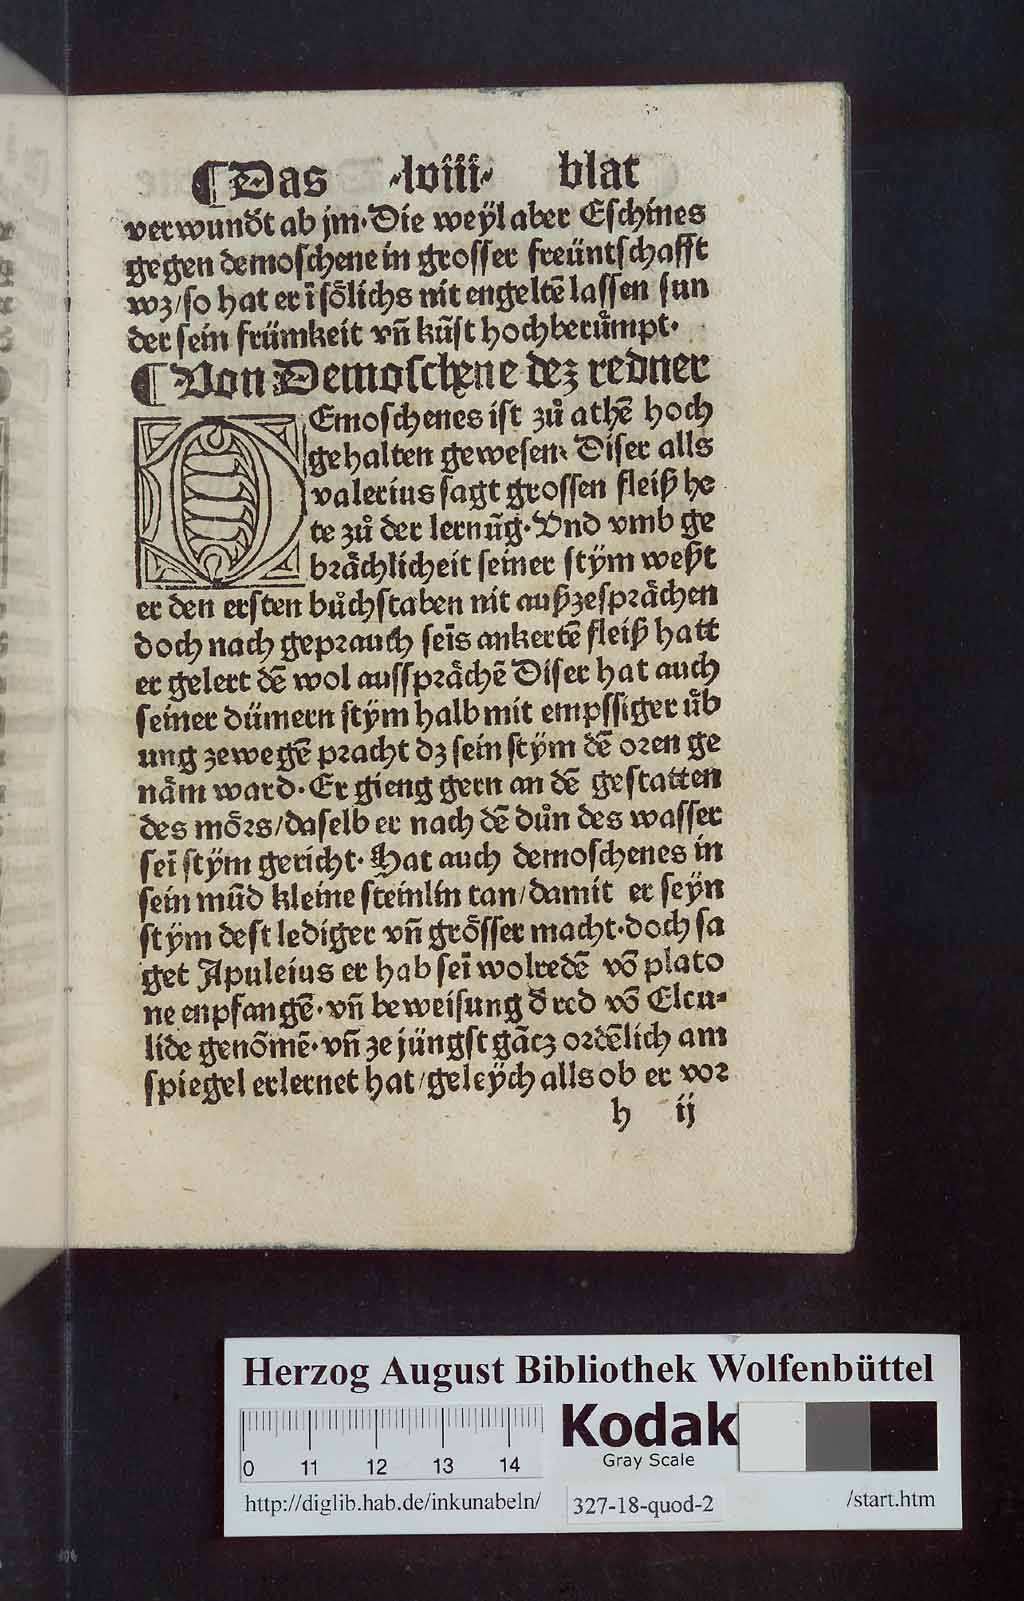 ¶Das ·lviii· blat
verwundt ab jm·Die weÿl aber Eschines
gegen demoschene in grosser freüntschafft
wz/so hat er ī sölichs nit engeltē lassen sun
der sein frümkeit vñ kūst hochberuͤmpt·
¶Von Demoschene dez redner
DEmoschenes ist zuͦ athē hoch
gehalten gewesen· Diser alls
valerius sagt grossen fleiß he
te zuͦ der lernūg·Vnd vmb ge
brächlicheit seiner stÿm weßt
er den ersten buͦchstaben nit außzesprächen
doch nach geprauch seīs ankertē fleiß hatt
er gelert dē wol aussprächē Diser hat auch
seiner dümern stÿm halb mit empssiger uͤb
ung zewegē pracht dz sein stÿm dē oren ge
näm ward·Er gieng gern an dē gestatten
des mörs/daselb er nach dē duͦn des wasser
seī stÿm gericht·Hat auch demoschenes in
sein mūd kleine steinlin tan/damit er seÿn
stÿm dest lediger vñ grösser macht·doch sa
get Apuleius er hab seī wolredē vō plato
ne enpfangē·vñ beweisung d̄ red vō Elcu-
lide genōmē·vñ ze jüngst gātz ordēlich am
spiegel erlernet hat/geleÿch alls ob er vor
h ij
Herzog August Bibliothek Wolfenbüttel
0 11 12 13 14
Kodak
Gray Scale
http://diglib.hab.de/inkunabeln/ 327-18-quod-2 /start.htm